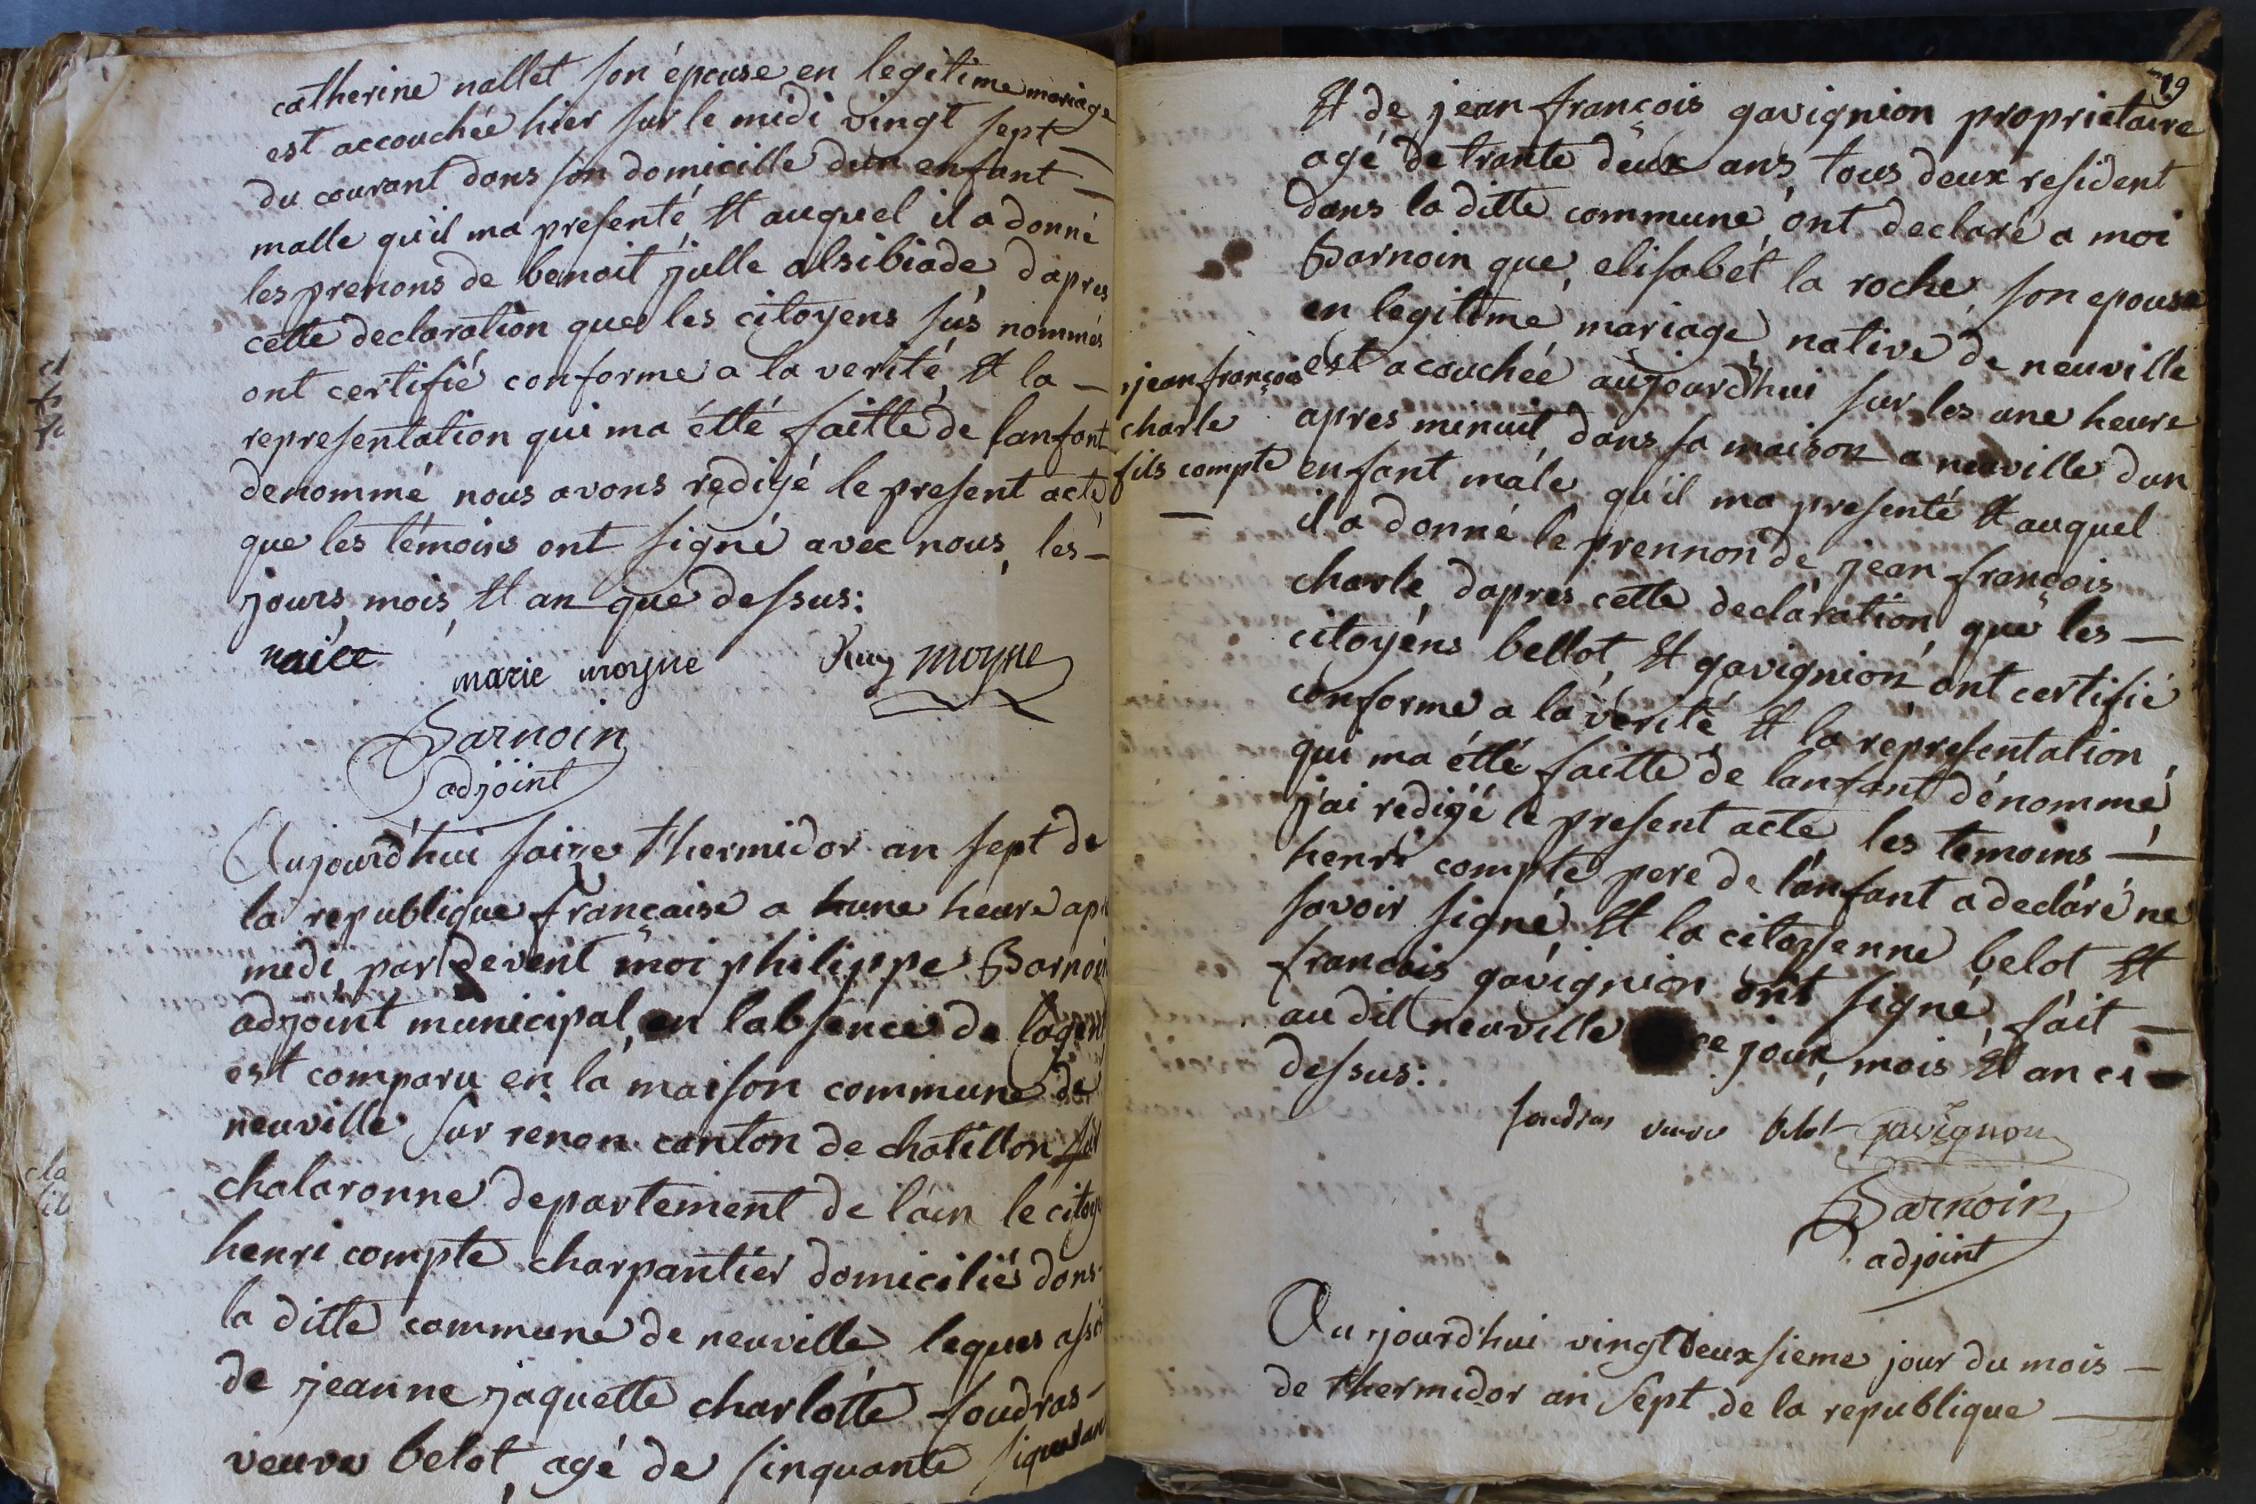 catherine nallet son épouse en legitime mariage
est accouchée hier sur le midi vingt sept
du courant dans son domicille dun enfant
malle qu'il ma presenté, et auquel il a donné
les prenons de benoit julle alsibiade, dapres
cette declaration que les citoyens sus nommés
ont certifié conforme a la verité, et la
representation qui ma étté faitte de lanfant
denommé nous avons redigé le present acte
que les témoins ont signé avec nous, les
jours, mois, et an que dessus:
marie moyne moyne
Barnoin
adjoint
Aujourd'hui saize thermidor an sept de
la republique française a hune heure
midi, par devent moi philippe Barnoin
adjoint municipal, en labsence de lagent
est comparu en la maison commune de
neuville sur renon canton de chatillon
chalaronne departement de lain le
henri compte charpantier domiciliés dans
la ditte commune de neuville leques
de jeanne jaquette charlotte foudras
veuve belot, agé de sinquante
19
et de jean françois gavignion proprietaire
agé de trante deux ans, tous deux resident
dans la ditte commune, ont declaré a moi
Barnoin que, elisabét la roche, son epouse
en legitime mariage, native de neuville
est acouchée aujourd'hui sur les une heure
apres minuit, dans sa maison a neuville dun
enfant mâle, qu'il ma presenté et auquel
il a donné le prennon de jean françois
charle, dapres cette declaration, que les
citoyéns bellot, et gavignion ont certifié
conforme a la verité et la representation,
qui ma étté faitte de lanfant dénommé,
j'ai redigé le present acte, les temoins
henri compte pere de l'anfant a declaré ne
savoir signé, et la citoyenne belot et
francois gavignion ont signé, fait
au dit neuville ce jour, mois et an ci
dessus:
jean françois
charle
fils compte
foudras veuve belot gavignon
Barnoin
adjoint
Au jourd'hui vingt deuxsieme jour du mois
de thermidor an sept de la republique